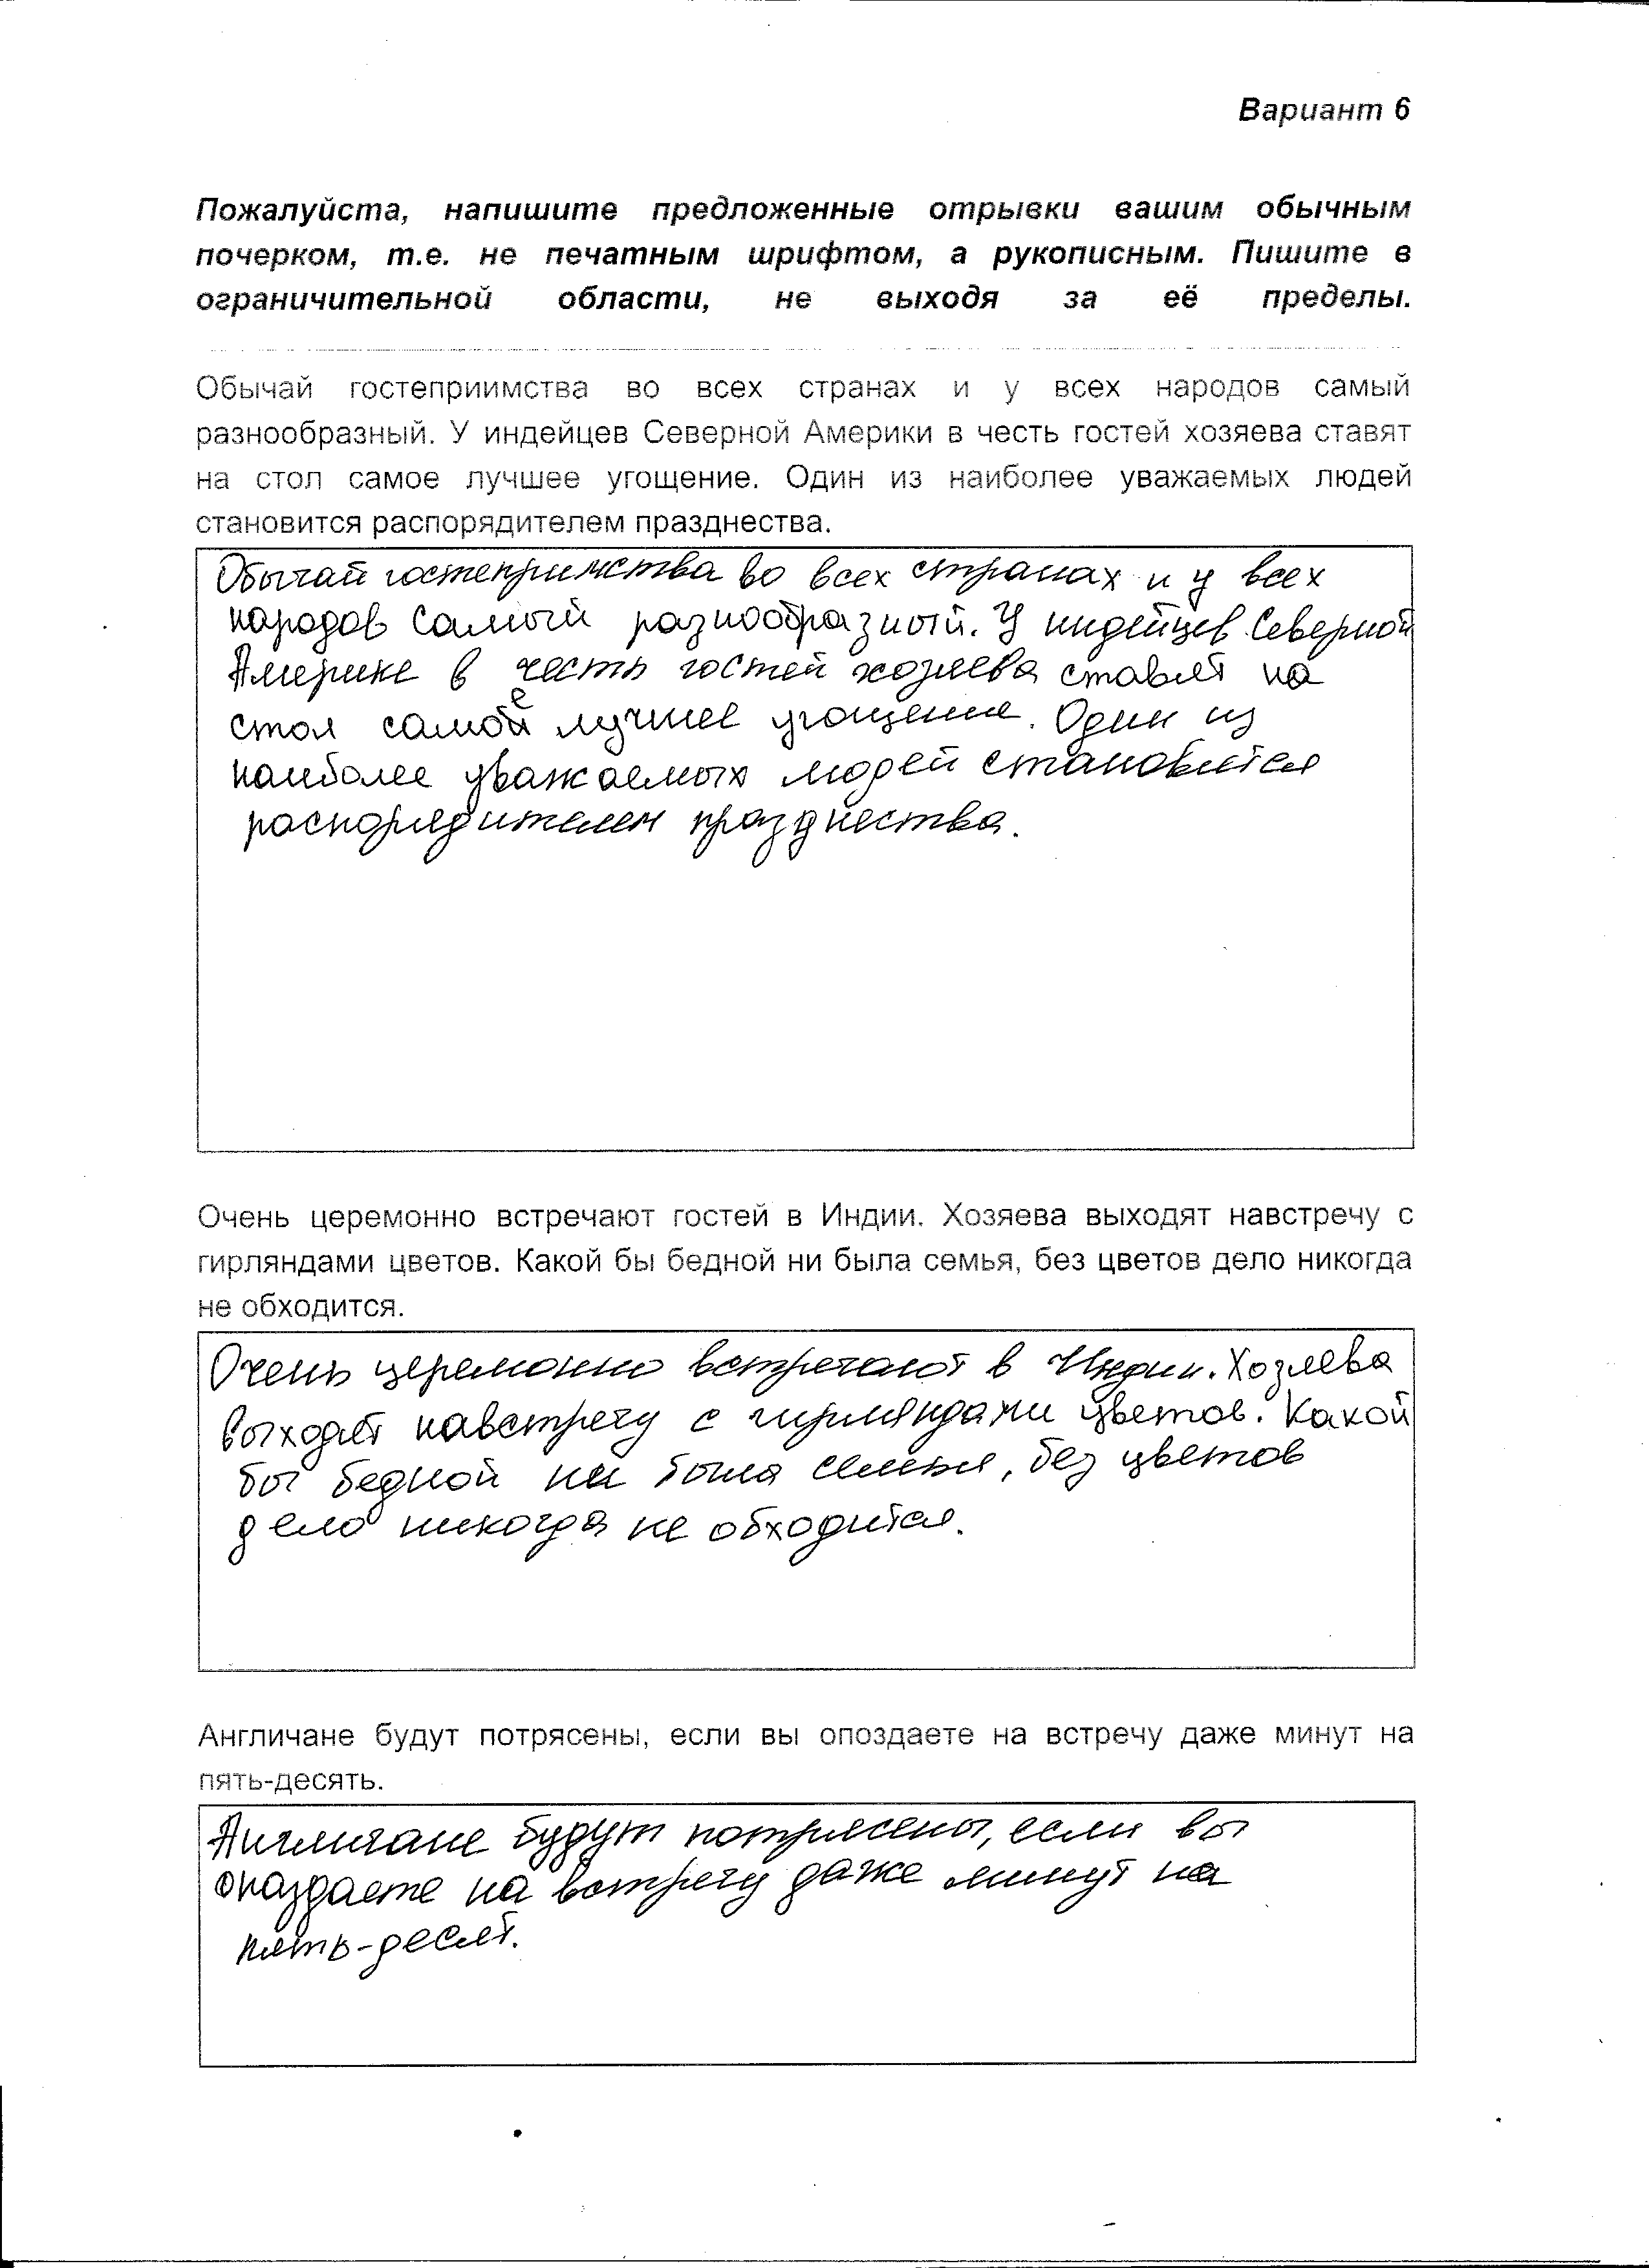 Вариант 6
Пожалуйста, напишите предложенные отрывки вашим обычным
почерком, т.е. не печатным шрифтом, а рукописным. Пишите в
ограничительной области, не выходя за её пределы.
Обычай гостеприимства во всех странах и у всех народов самый
разнообразный. У индейцев Северной Америки в честь гостей хозяева ставят
на стол самое лучшее угощение. Один из наиболее уважаемых людей
становится распорядителем празднества.
Обычай гостепримства во всех странах и у всех
народов самый разнообразный. У индейцев Северной
Америке в честь гостей хозяева ставят на
стол самое лучшее угощение. Один из
наиболее уважаемых людей становится
распорядителем празднества.
Очень церемонно встречают гостей в Индии. Хозяева выходят навстречу с
гирляндами цветов. Какой бы бедной ни была семья, без цветов дело никогда
не обходится.
Очень церемонно встречают в Индии. Хозяева
выходят навстречу с гирляндами цветов. Какой
бы бедной ни была семья, без цветов
дело никогда не обходится.
Англичане будут потрясены, если вы опоздаете на встречу даже минут на
пять-десять.
Англичане будут потрясены, если вы
опаздаете на встречу даже минут на
пять-десят.